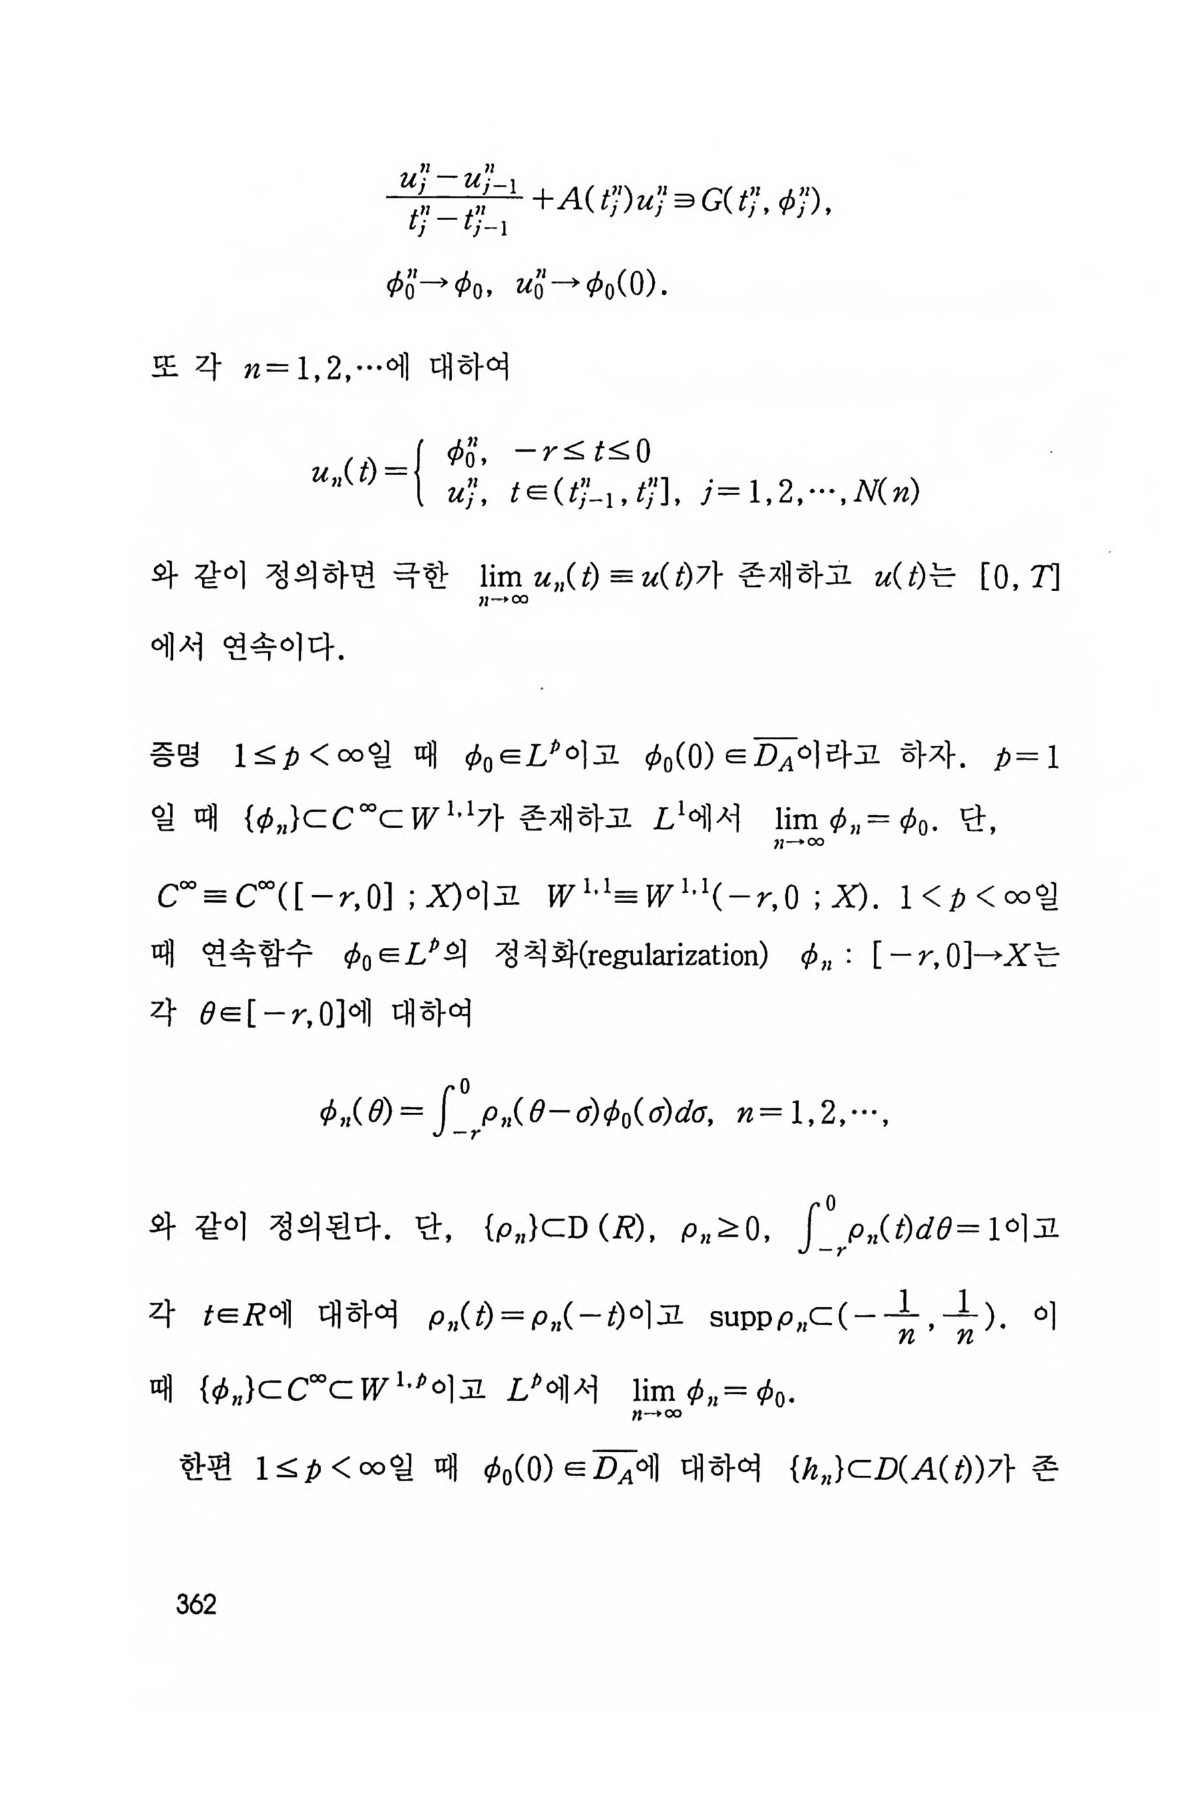 $\frac{u_j^n - u_{j-1}^n}{t_j^n - t_{j-1}^n} + A(t_j^n)u_j^n \ni G(t_j^n, \phi_j^n),$
$\phi_0^n \to \phi_0, \ u_0^n \to \phi_0(0).$
또 각 $n=1,2,\cdots$에 대하여
$u_n(t) = \begin{cases} \phi_0^n, & -r \le t \le 0 \\ u_j^n, & t \in (t_{j-1}^n, t_j^n], \ j=1,2,\cdots,N(n) \end{cases}$
와 같이 정의하면 극한 $\lim_{n\to\infty} u_n(t) \equiv u(t)$가 존재하고 $u(t)$는 $[0,T]$
에서 연속이다.
증명 $1 \le p < \infty$일 때 $\phi_0 \in L^p$이고 $\phi_0(0) \in \overline{D_A}$이라고 하자. $p=1$
일 때 $\{\phi_n\} \subset C^\infty \subset W^{1,1}$가 존재하고 $L^1$에서 $\lim_{n\to\infty} \phi_n = \phi_0$. 단,
$C^\infty \equiv C^\infty([-r,0] ; X)$이고 $W^{1,1} \equiv W^{1,1}(-r,0 ; X)$. $1 < p < \infty$일
때 연속함수 $\phi_0 \in L^p$의 정칙화(regularization) $\phi_n : [-r,0] \to X$는
각 $\theta \in [-r,0]$에 대하여
$\phi_n(\theta) = \int_{-r}^0 \rho_n(\theta-\sigma)\phi_0(\sigma)d\sigma, \ n=1,2,\cdots,$
와 같이 정의된다. 단, $\{\rho_n\} \subset \mathrm{D}(R), \ \rho_n \ge 0, \ \int_{-r}^0 \rho_n(t)d\theta = 1$이고
각 $t \in R$에 대하여 $\rho_n(t) = \rho_n(-t)$이고 $\mathrm{supp}\rho_n \subset (-\frac{1}{n}, \frac{1}{n})$. 이
때 $\{\phi_n\} \subset C^\infty \subset W^{1,p}$이고 $L^p$에서 $\lim_{n\to\infty} \phi_n = \phi_0$.
한편 $1 \le p < \infty$일 때 $\phi_0(0) \in \overline{D_A}$에 대하여 $\{h_n\} \subset D(A(t))$가 존
362